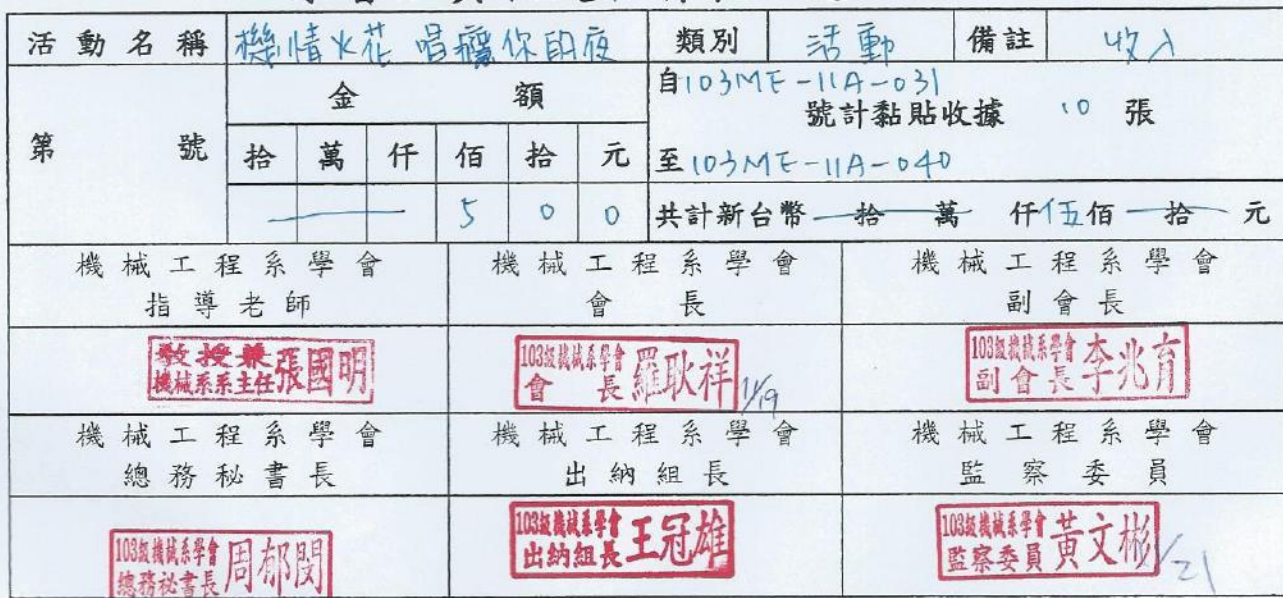 活動名稱 機情火花 唱癮你的夜 類別 活動 備註 收入
第 號
金 額
拾 萬 仟 佰 拾 元
5 0 0
自103ME-11A-031
號計黏貼收據 10 張
至103ME-11A-040
共計新台幣 拾 萬 仟伍佰 拾 元
機械工程系學會
指導老師
機械工程系學會
會長
機械工程系學會
副會長
教授兼
機械系系主任張國明
103級機械系學會
會長羅耿祥
11/19
103級機械系學會
副會長李兆育
機械工程系學會
總務秘書長
機械工程系學會
出納組長
機械工程系學會
監察委員
103級機械系學會
總務秘書長周郁閔
103級機械系學會
出納組長王冠雄
103級機械系學會
監察委員黃文彬